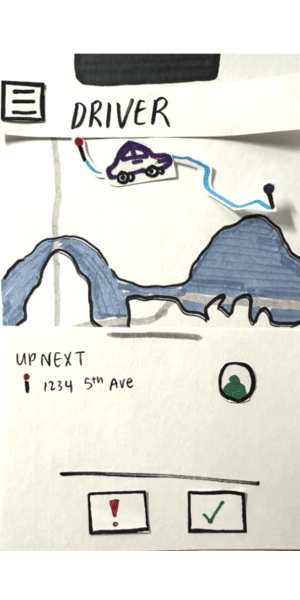 DRIVER
UP NEXT
1234 5th Ave
!